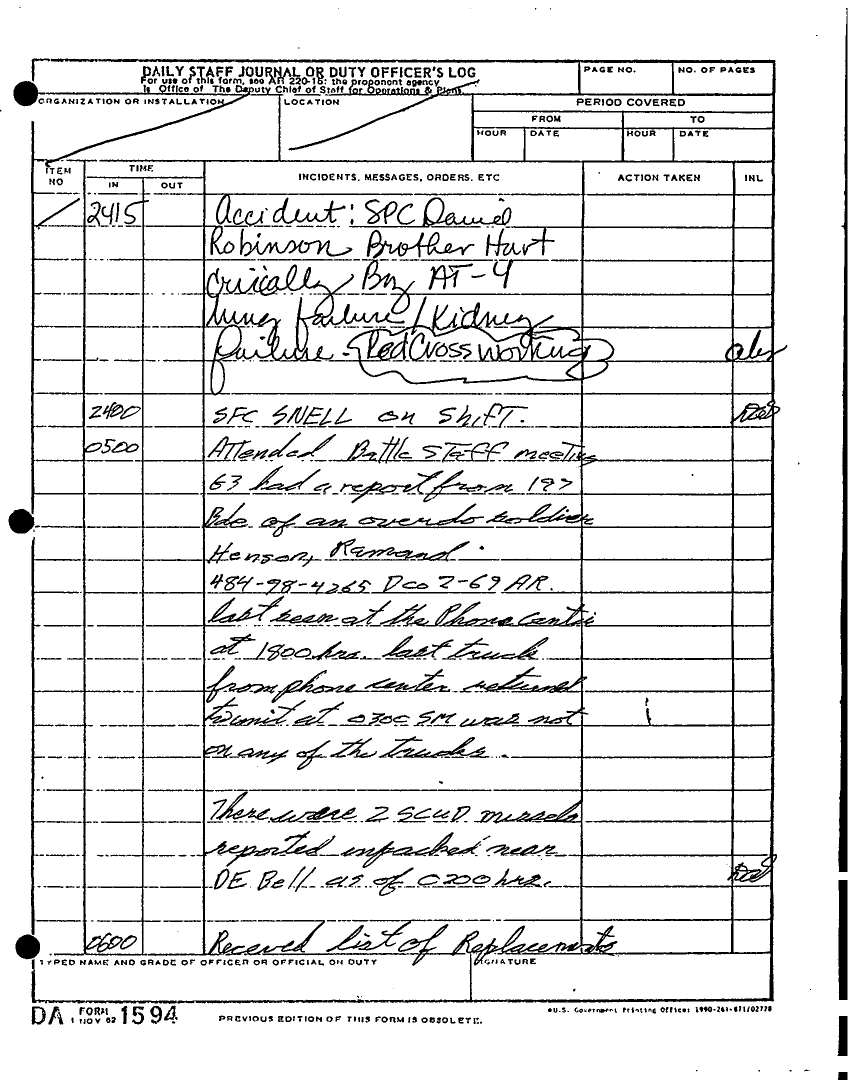 DAILY STAFF JOURNAL OR DUTY OFFICER'S LOG
For use of this form, see AR 220-15; the proponent agency
is Office of The Deputy Chief of Staff for Operations & Plans.
PAGE NO.
NO. OF PAGES
ORGANIZATION OR INSTALLATION
LOCATION
PERIOD COVERED
FROM
TO
HOUR
DATE
HOUR
DATE
ITEM NO
TIME
IN
OUT
INCIDENTS, MESSAGES, ORDERS, ETC
ACTION TAKEN
INL
2415 Accident: SPC Daniel
Robinson Brother Hurt
Crically By AT-4
lung failure / Kidney
failure - Red Cross Working
2400 SFC SNELL on Shift.
0500 Attended Battle Staff meeting
G3 had a report from 197
Bde of an overdo soldier
Henson, Ramand.
484-98-4265 Dco 2-69 AR.
last seen at the Phone Center
at 1800 hrs. last truck
from phone center returned
to unit at 0300 SM was not
on any of the trucks.
There were 2 SCUD missels
reported impacked near
DE Bell as of 0200 hrs.
0600 Received list of Replacements
TYPED NAME AND GRADE OF OFFICER OR OFFICIAL ON DUTY
SIGNATURE
DA FORM 1 NOV 62 1594
PREVIOUS EDITION OF THIS FORM IS OBSOLETE.
*U.S. Government Printing Office: 1990-261-871/02778